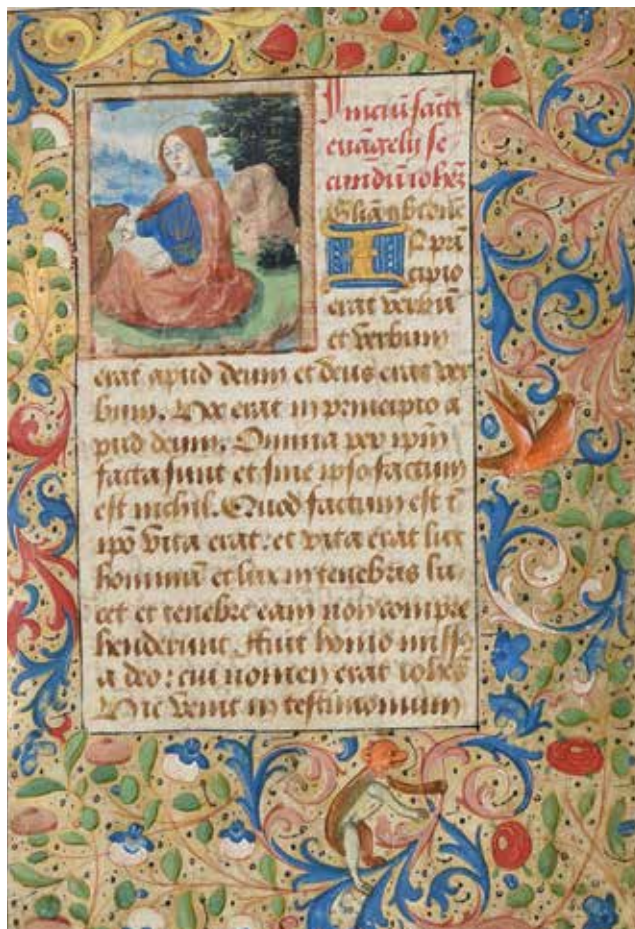 Iniciū sācti
euāgelij se-
cundū iohēz
Gl'ia tibi dñe
In prin
cipio
erat verbū
et verbum
erat apud deum et deus erat ver
bum. Hoc erat in principio a
pud deum. Omnia per ipm̄
facta sunt et sine ipso factum
est nichil. Quod factum est ī
ipō vita erat: et vita erat lux
hominū et lux in tenebris lu-
cet et tenebre eam non compre
henderunt. Fuit homo miss9
a deo: cui nomen erat iohēs
Hic venit in testimonium